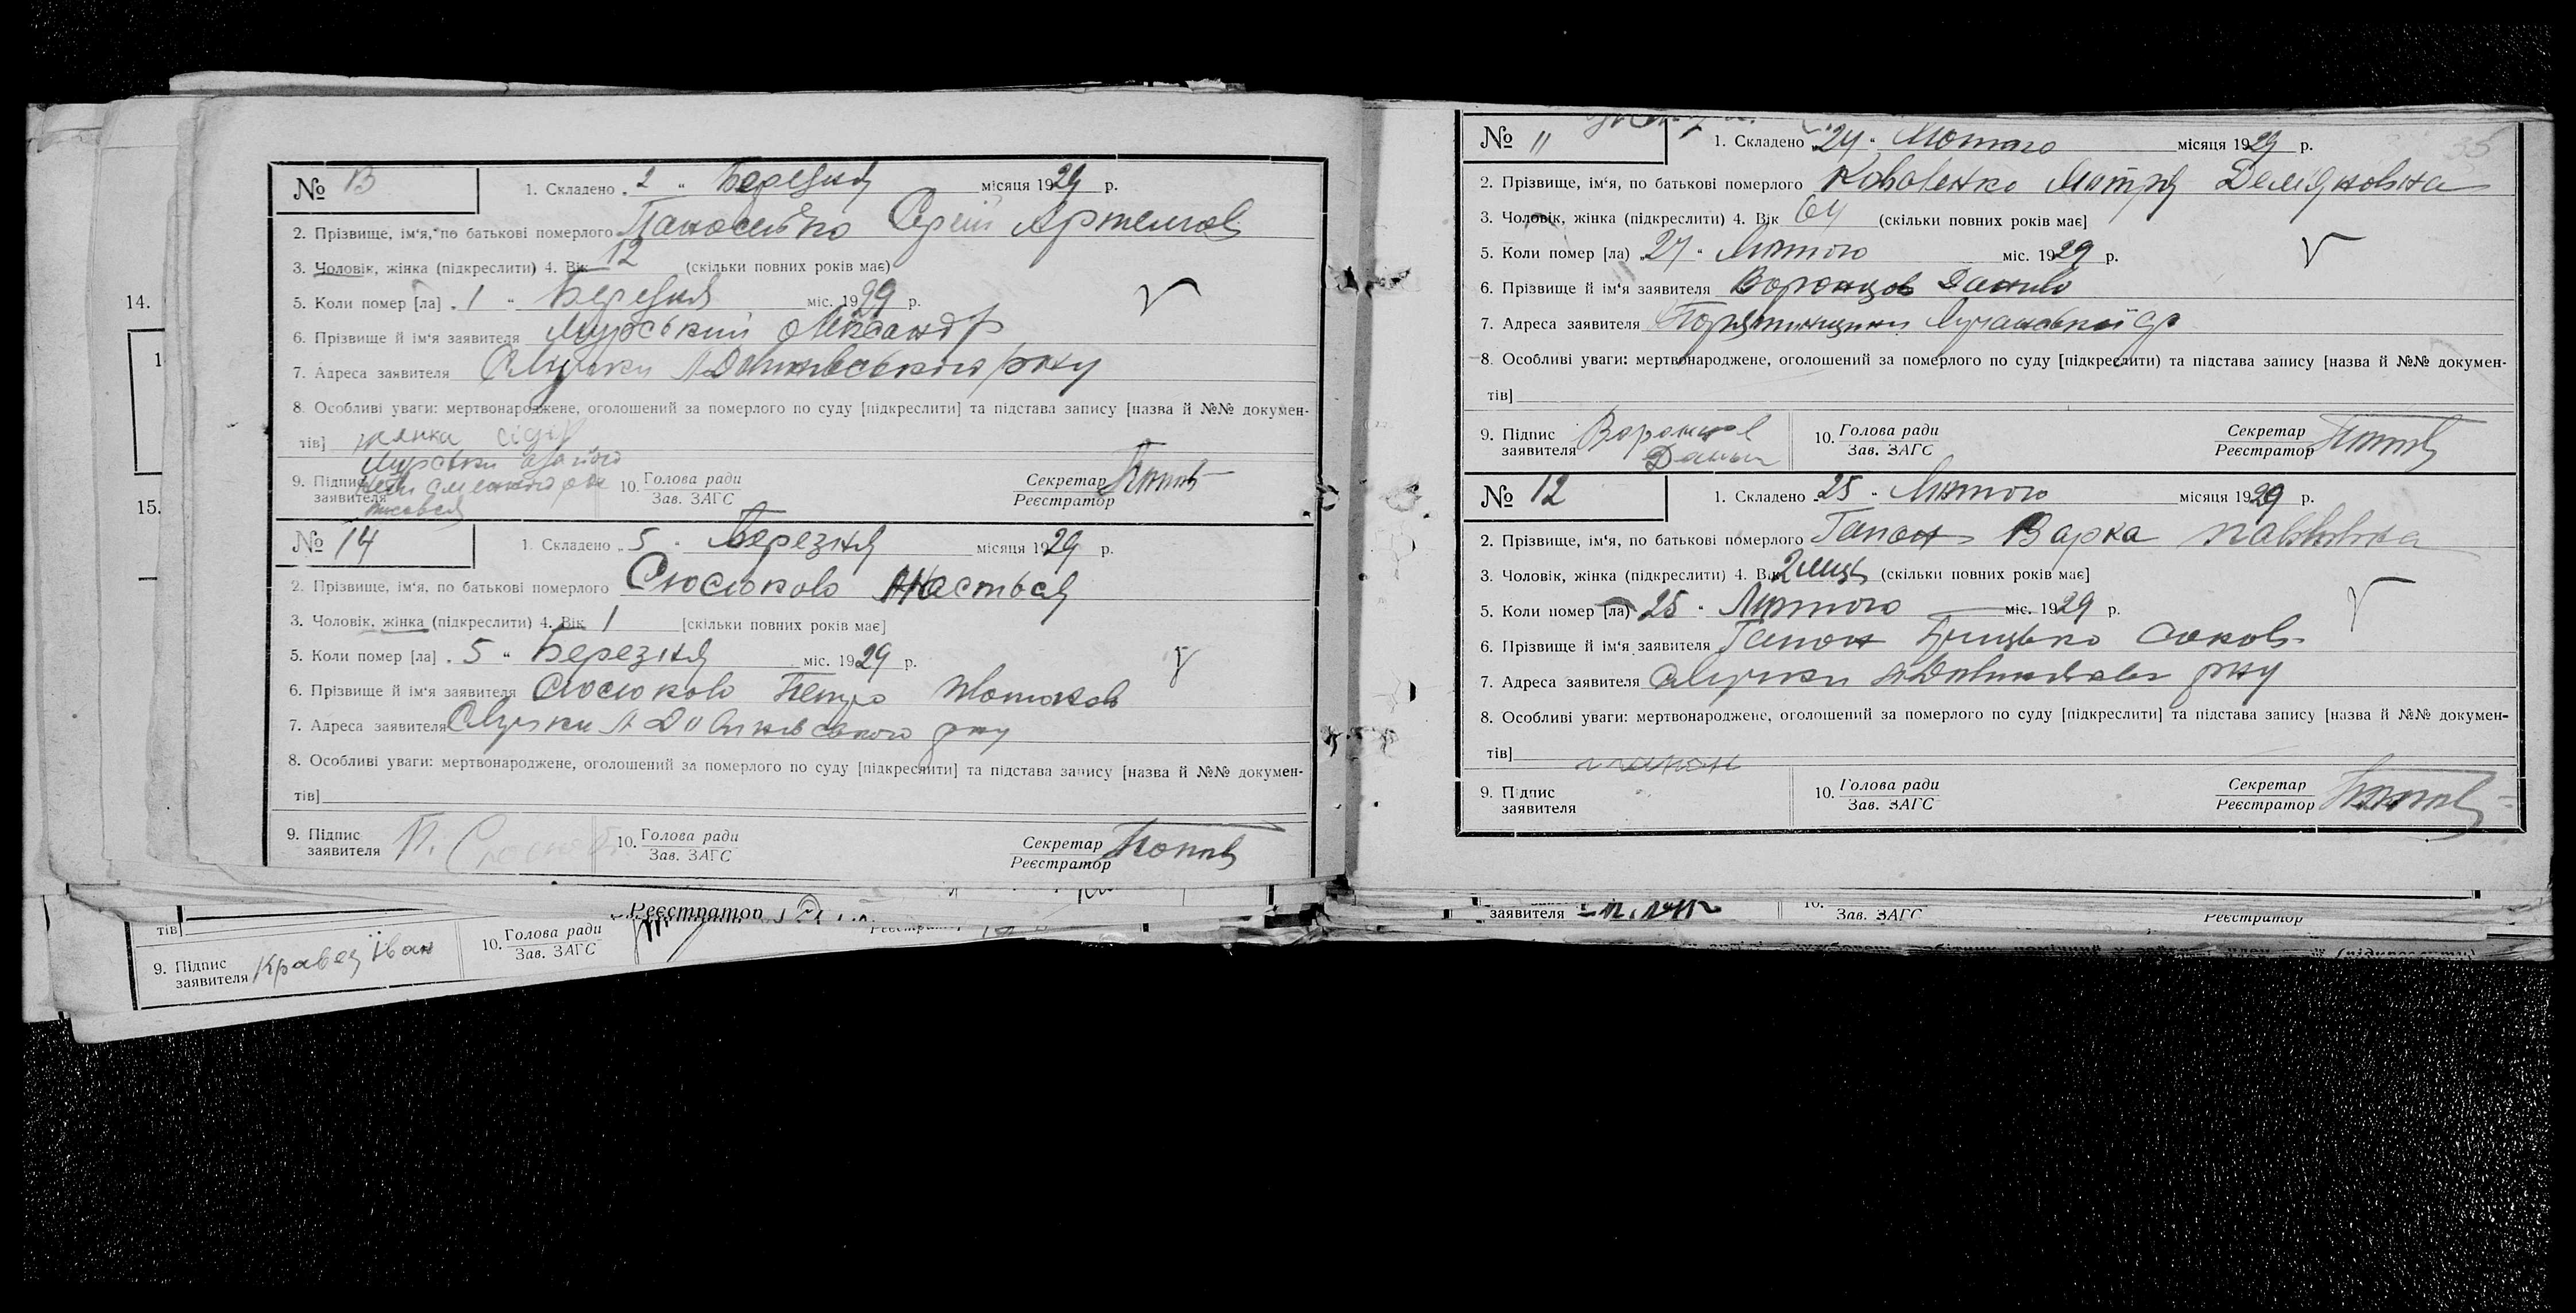 № 13 1. Складено „ 2 “ Березня місяця 1929 р.
2. Прізвище, ім‘я, по батькові померлого Панасенко Сергій Артемов
3. Чоловік, жінка (підкреслити) 4. Вік 12 (скільки повних років має)
5. Коли помер [ла] „ 1 “ Березня міс. 1929 р.
6. Прізвище й ім‘я заявителя Мурський Олександр
7. Адреса заявителя Лучки Л Долинського р/ну
8. Особливі уваги: мертвонароджене, оголошений за померлого по суду [підкреслити] та підстава запису [назва й №№ докумен-
тів]
9. Підпис заявителя 10. Голова ради Зав. ЗАГС Секретар Реєстратор Попов
№ 14 1. Складено „ 5 “ Березня місяця 1929 р.
2. Прізвище, ім‘я, по батькові померлого Слюсюково Настья
3. Чоловік, жінка (підкреслити) 4. Вік 1 [скільки повних років має]
5. Коли помер [ла] „ 5 “ Березня міс. 1929 р.
6. Прізвище й ім‘я заявителя Слюсюково Петро
7. Адреса заявителя Лучки Л Долинського р/ну
8. Особливі уваги: мертвонароджене, оголошений за померлого по суду [підкреслити] та підстава запису [назва й №№ докумен-
тів]
9. Підпис заявителя П. 10. Голова ради Зав. ЗАГС Секретар Реєстратор Попов
14.
15.
Реєстратор
тів]
9. Підпис заявителя Кравец Іван 10. Голова ради Зав. ЗАГС
№ 11 1. Складено „ 24 “ Лютого місяця 1929 р. 35
2. Прізвище, ім‘я, по батькові померлого Коваленко Мотря Демідковна
3. Чоловік, жінка (підкреслити) 4. Вік 64 (скільки повних років має]
5. Коли помер [ла) „ 24 “ Лютого міс. 1929 р.
6. Прізвище й ім‘я заявителя Воронцов Данило
7. Адреса заявителя Лучанської с/р
8. Особливі уваги: мертвонароджене, оголошений за померлого по суду [підкреслити) та підстава запису [назва й №№ докумен-
тів]
9. Підпис заявителя Воронцов Данил 10. Голова ради Зав. ЗАГС Секретар Реєстратор Попов
№ 12 1. Складено „ 25 “ Лютого місяця 1929 р.
2. Прізвище, ім‘я, по батькові померлого Гапон Варка Павловна
3. Чоловік, жінка (підкреслити) 4. Вік 2 місц (скільки повних років має]
5. Коли помер [ла) 25 “ Лютого міс. 1929 р.
6. Прізвище й ім‘я заявителя Гапон Грицько Яковл
7. Адреса заявителя Лучки р/ну
8. Особливі уваги: мертвонароджене, оголошений за померлого по суду [підкреслити] та підстава запису [назва й №№ докумен-
тів]
гапон
9. Підпис заявителя 10. Голова ради Зав. ЗАГС Секретар Реєстратор Попов
заявителя Зав. ЗАГС Реєстратор